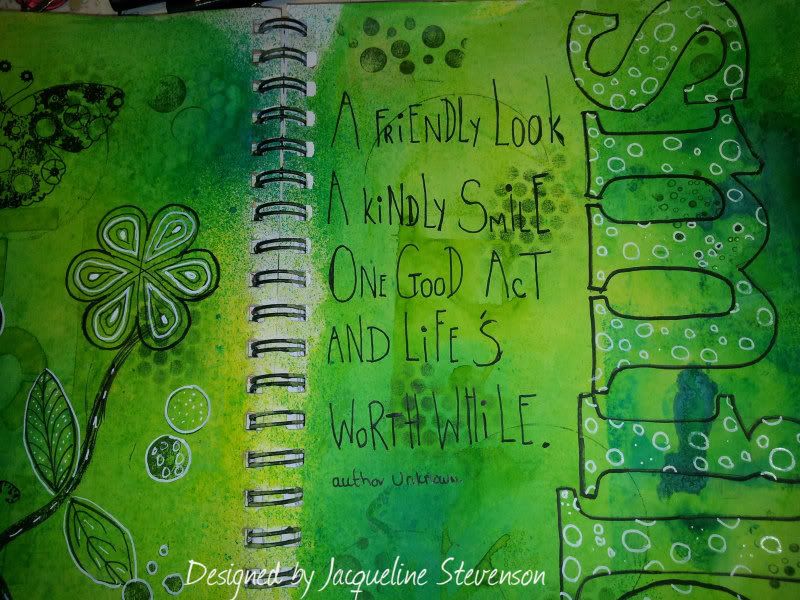 A FRiENDLY LOOK
A KiNDLY SMiLE
ONE GOOD ACT
AND LiFE'S
WORTH WHiLE.
author Unknown.
Designed by Jacqueline Stevenson